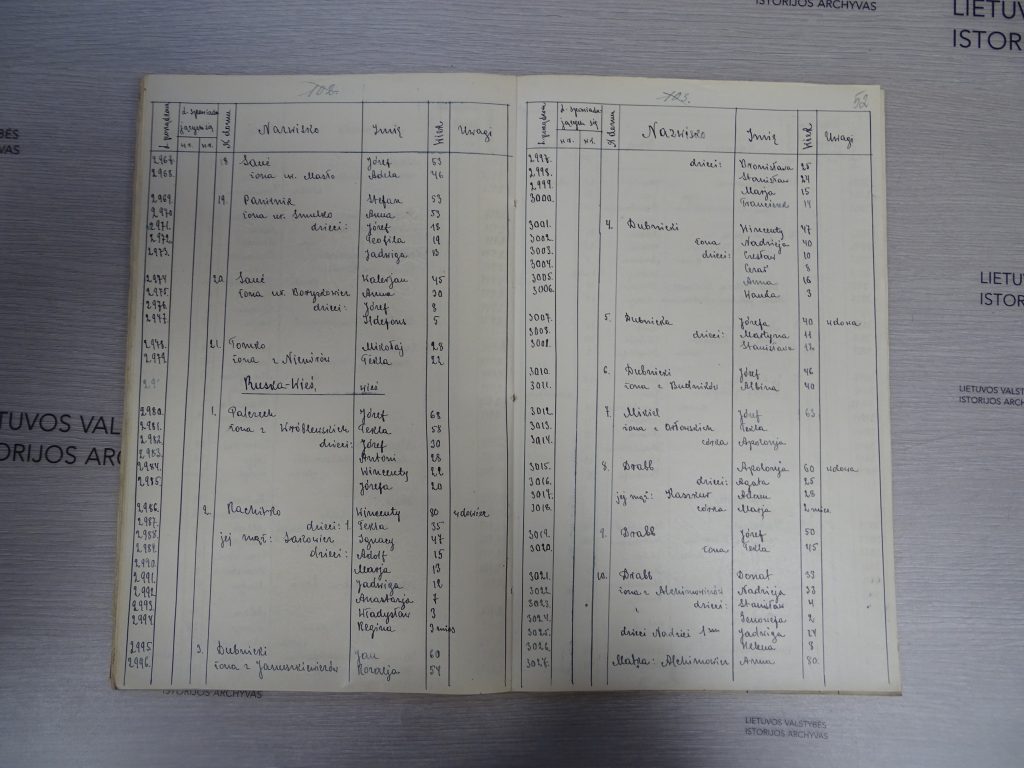 ISTORIJOS ARCHYVAS
LIETUV
ISTOR
102.
L. porządkowa
L. spowiadających się
N domu
Nazwisko
Imię
Wiek
Uwagi
2967. 18 Sawć Józef 53
2968. żona ur. Masło Adela 46
2969. 19. Panitnik Stefan 53
2970 żona ur. Smulko Anna 53
2971. dzieci: Józef 18
2972. Teofila 19
2973. Jadwiga 13
2974 20. Sawć Walerjan 45
2975. żona ur. Borysewicz Anna 30
2976. dzieci: Józef 8
2977. Ildefons 5
2978. 21. Tomko Mikołaj 28
2979. żona z Tekla 22
Ruska-Wieś, wieś
2980. 1. Palczech Józef 68
2981. żona z Wróblewskich Tekla 58
2982. dzieci: Józef 30
2983. Antoni 28
2984. Wincenty 22
2985. Józefa 20
2986. 2. Rachitko Wincenty 80 wdowiec
2987. dzieci: 1. Tekla 35
2988. jej mąż: Ignacy 47
2989. dzieci: Adolf 15
2990. Marja 13
2991. Jadwiga 12
2992 Anastazja 7
2993. Władysław 3
2994. Regina 3 mies
2995. 3. Dubnicki Jan 60
2996. żona z Januszkiewiczów Rozalja 54
103. 52
L. porządkowa
L. spowiadających się
N domu
Nazwisko
Imię
Wiek
Uwagi
2997. dzieci: Bronisława 25
2998. Stanisław 24
2999. Marja 15
3000. Franciszek 14
3001. 4. Dubnicki Wincenty 47
3002. żona Nadzieja 40
3003. dzieci: Czesław 10
3004. 8
3005. Anna 16
3006. Hanka 3
3007. 5. Dubnicka Józefa 40 wdowa
3008. dzieci: Martyna 11
3009. Stanisława 12
3010. 6. Dubnicki Józef 46
3011. żona z Budników Albina 40
3012. 7. Misiel Józef 63
3013. żona z Orłowskich Tekla
3014. córka Apolonja
3015. 8. Drabb Apolonja 60 wdowa
3016. dzieci: Agata 25
3017. jej mąż: Kaszkur Adam 28
3018. córka Marja 2 mies
3019. 9. Drabb Józef 50
3020. żona Tekla 45
3021. 10. Drabb Donat 33
3022 żona z Alchimowiczów Nadzieja 33
3023. dzieci: Stanisław 4
3024. Genowefa 2
3025. dzieci Nadziei Jadwiga 14
3026. Helena 8
3027. Matka: Alchimowicz Anna 80.
LIETUVOS VALSTYBĖS
ISTORIJOS ARCHYVAS